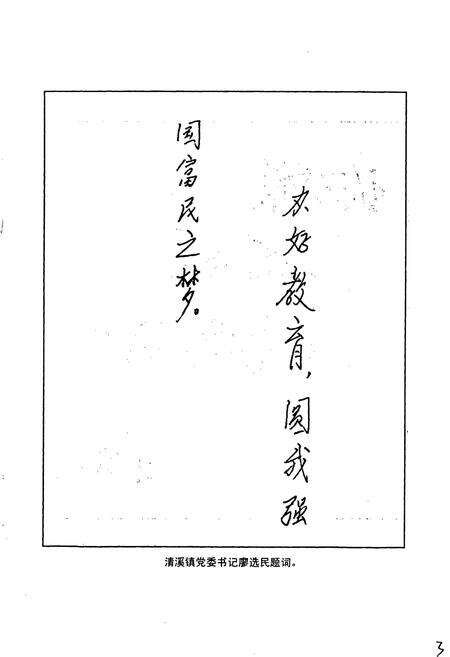 办好教育，圆我强
国富民之梦。
清溪镇党委书记廖选民题词。
3